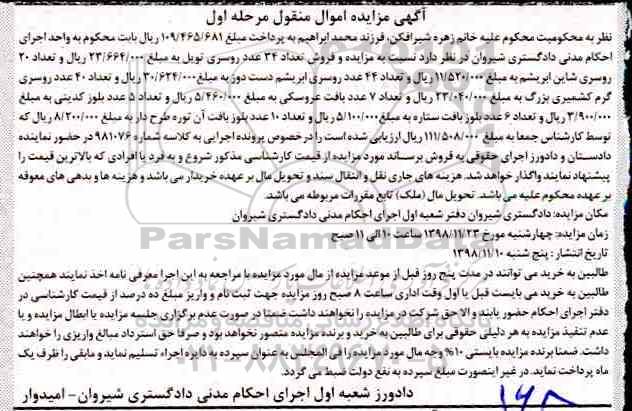 آگهی مزایده اموال منقول مرحله اول
نظر به محکومیت محکوم علیه خانم زهره شیرافکن، فرزند محمد ابراهیم به پرداخت مبلغ ۱۰۹/۴۶۵/۶۸۱ ریال بابت محکوم به واحد اجرای
احکام مدنی دادگستری شیروان در نظر دارد نسبت به مزایده و فروش تعداد ۳۴ عدد روسری تویل به مبلغ ۲۳/۶۶۴/۰۰۰ ریال و تعداد ۲۰
روسری شاین ابریشم به مبلغ ۱۱/۵۲۰/۰۰۰ ریال و تعداد ۴۴ عدد روسری ابریشم دست دوز به مبلغ ۳۰/۶۲۴/۰۰۰ ریال و تعداد ۴۰ عدد روسری
گرم کشمیری بزرگ به مبلغ ۲۳/۰۴۰/۰۰۰ ریال و تعداد ۷ عدد بافت عروسکی به مبلغ ۵/۴۶۰/۰۰۰ ریال و تعداد ۵ عدد بلوز کدیتی به مبلغ
۳/۹۰۰/۰۰۰ ریال و تعداد ۶ عدد بلوز بافت ستاره به مبلغ ۵/۱۰۰/۰۰۰ ریال و تعداد ۱۰ عدد بلوز بافت آن توره طرح دار به مبلغ ۸/۲۰۰/۰۰۰ ریال که
توسط کارشناس جمعا به مبلغ ۱۱۱/۵۰۸/۰۰۰ ریال ارزیابی شده است را در خصوص پرونده اجرایی به کلاسه شماره ۹۸۱۰۷۶ در حضور نماینده
دادستان و دادورز اجرای حقوقی به فروش برساند مورد مزایده از قیمت کارشناسی مذکور شروع و به فرد یا افرادی که بالاترین قیمت را
پیشنهاد نمایند واگذار خواهد شد. هزینه های جاری نقل و انتقال سند و تحویل مال بر عهده خریدار می باشد و هزینه ها و بدهی های معوقه
بر عهده محکوم علیه می باشد. تحویل مال (ملک) تابع مقررات مربوطه می باشد.
مکان مزایده: دادگستری شیروان دفتر شعبه اول اجرای احکام مدنی دادگستری شیروان
زمان مزایده: چهارشنبه مورخ ۱۳۹۸/۱۱/۲۳ ساعت ۱۰ الی ۱۱ صبح
تاریخ انتشار: پنج شنبه ۱۳۹۸/۱۱/۱۰
طالبین به خرید می توانند در مدت پنج روز قبل از موعد مزایده از مال مورد مزایده با مراجعه به این اجرا معرفی نامه اخذ نمایند همچنین
طالبین به خرید می بایست قبل یا اول وقت اداری ساعت ۸ صبح روز مزایده جهت ثبت نام و واریز مبلغ ده درصد از قیمت کارشناسی در
دفتر اجرای احکام حضور یابند و الا حق شرکت در مزایده را نخواهند داشت ضمنا در صورت عدم برگزاری جلسه مزایده یا ابطال مزایده و یا
عدم تنفیذ مزایده به هر دلیلی حقوقی برای طالبین به خرید و برنده مزایده متصور نخواهد بود و صرفا حق استرداد مبالغ واریزی را خواهند
داشت. ضمنا برنده مزایده بایستی ۱۰% وجه مال مورد مزایده را فی المجلس به عنوان سپرده به دایره اجراء تسلیم نماید و مابقی را ظرف یک
ماه پرداخت نماید. در غیر اینصورت مبلغ سپرده به نفع دولت ضبط می گردد.
دادورز شعبه اول اجرای احکام مدنی دادگستری شیروان- امیدوار
ParsNamadData